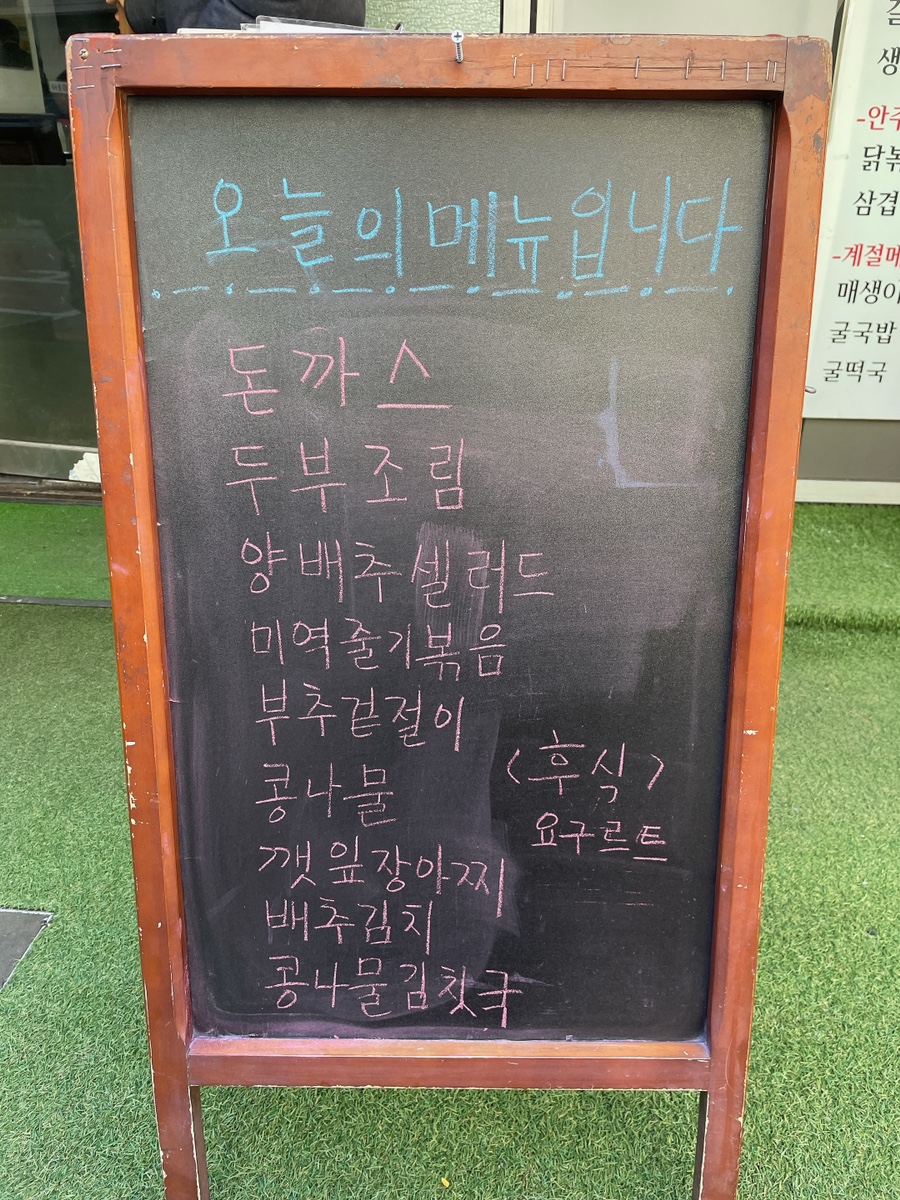 오늘의 메뉴입니다
돈까스
두부조림
양배추셀러드
미역줄기볶음
부추겉절이
콩나물
깻잎장아찌
배추김치
콩나물김칫국
<후식>
요구르트
생
-안주
닭볶
삼겹
-계절메
매생이
굴국밥
굴떡국